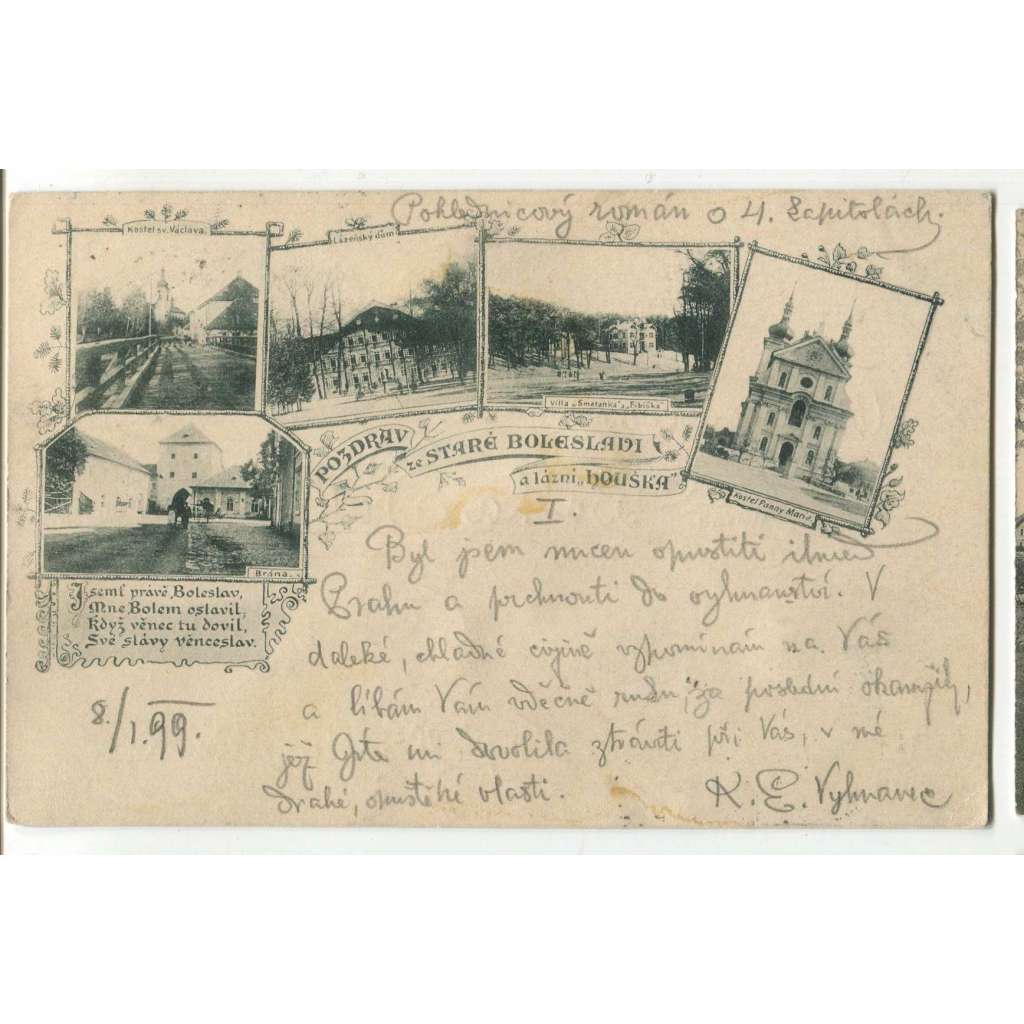 Pohlednicový román o 4. kapitolách.
Kostel sv. Václava.
Lázeňský dům
Villa „Smetanka" a „Fibiška"
Kostel Panny Marie
POZDRAV
ze STARÉ BOLESLAVI
a lázní „HOUŠKA"
Brána.
Jsemť právě Boleslav,
Mne Bolem oslavil,
Když věnec tu dovil,
Své slávy věnceslav.
I.
Byl jsem nucen opustiti
Prahu a prchnouti do vyhnanství. V
daleké, chladné cizině vzpomínám na Vás
a líbám Vám vděčně ruku, za poslední okamžiky,
jež Jste mi dovolila ztráviti při Vás, v mé
drahé, opuštěné vlasti.
K. E. Vyhnanec
8./I.99.